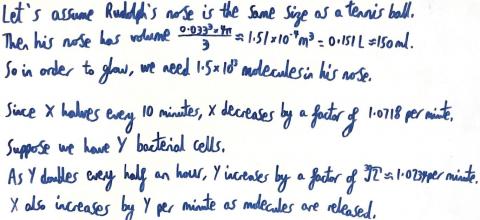 Let's assume Rudolph's nose is the same size as a tennis ball.
Then his nose has volume (0.033³×4π)/3 ≈ 1.51×10⁻⁴m³ = 0.151L ≈ 150ml.
So in order to glow, we need 1.5×10⁹ molecules in his nose.
Since X halves every 10 minutes, X decreases by a factor of 1.0718 per minute.
Suppose we have Y bacterial cells.
As Y doubles every half an hour, Y increases by a factor of ³⁰√2 ≈ 1.0234 per minute.
X also increases by Y per minute as molecules are released.